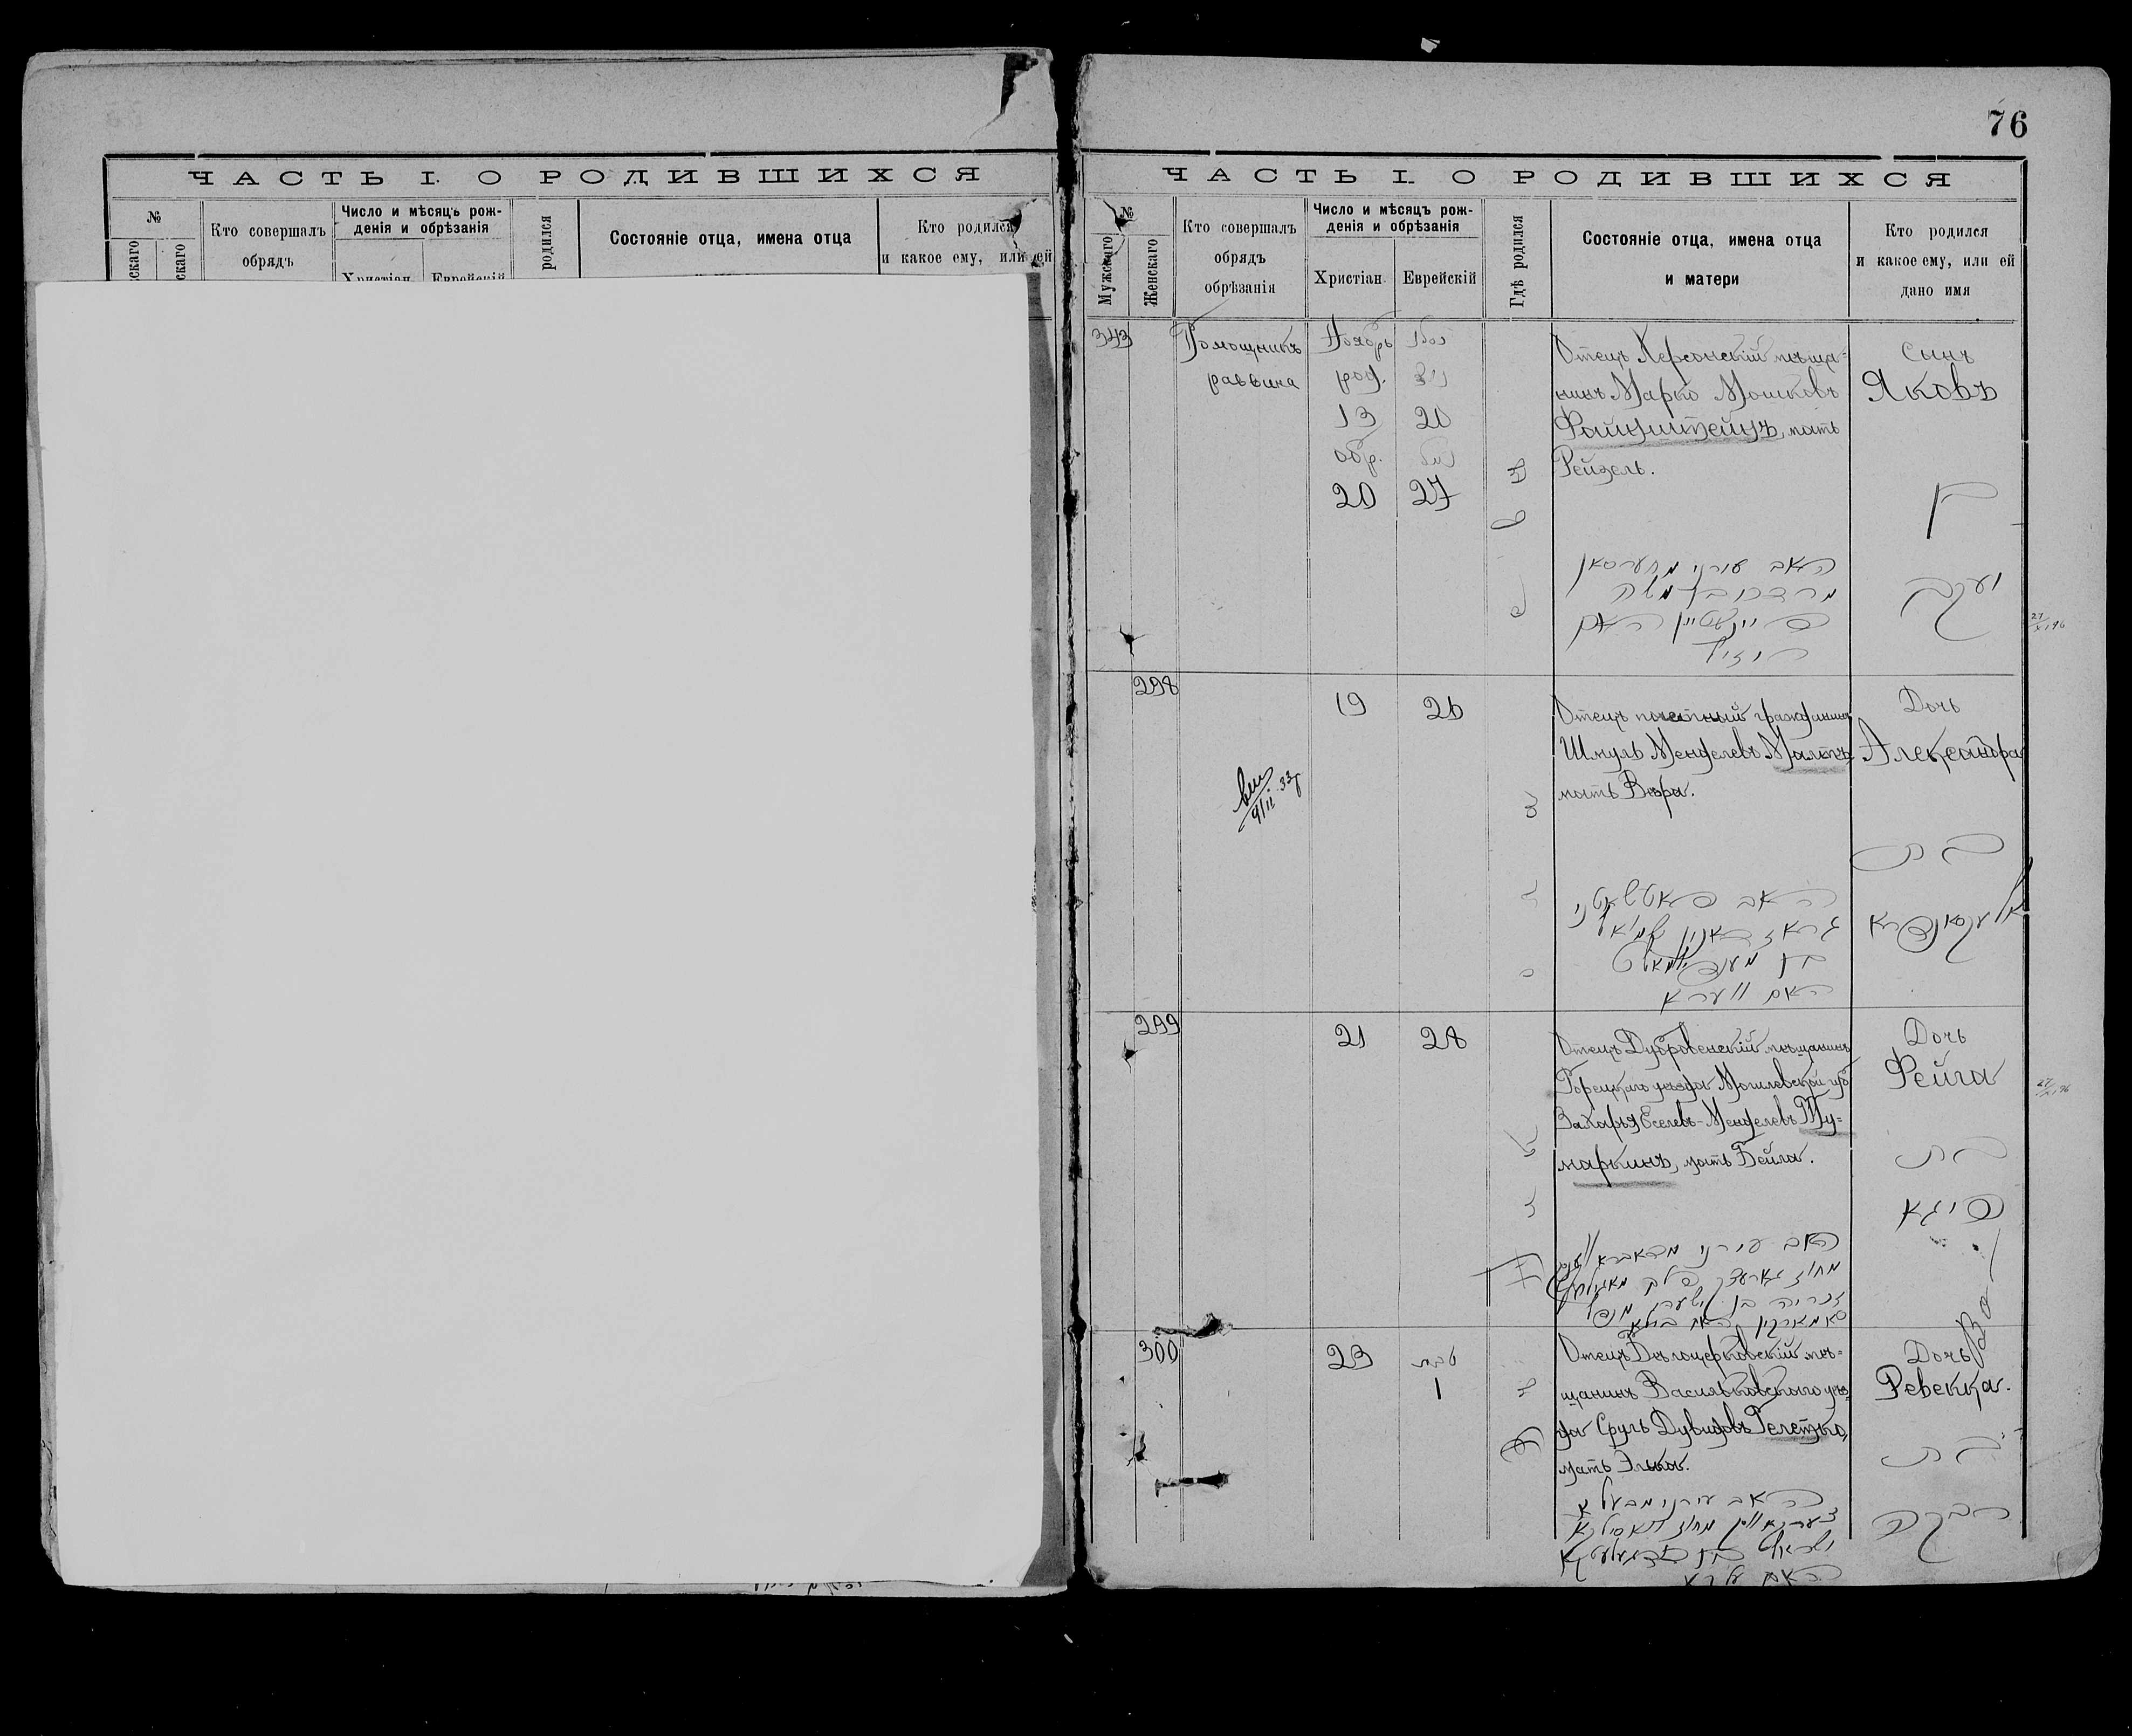 ЧАСТЬ I. О РОДИВШИХСЯ
№
скаго
скаго
Кто совершалъ
обрядъ
Число и мѣсяцъ рож-
денія и обрѣзанія
Христіан.
Еврейскій
родился
Состояніе отца, имена отца
Кто родился
и какое ему, или ей
76
ЧАСТЬ I. О РОДИВШИХСЯ
№
Мужскаго
Женскаго
Кто совершалъ
обрядъ
обрѣзанія
Число и мѣсяцъ рож-
денія и обрѣзанія
Христіан.
Еврейскій
Гдѣ родился
Состояніе отца, имена отца
и матери
Кто родился
и какое ему, или ей
дано имя
343
Помощникъ
раввина
Ноябрь
род.
13
20
обр.
20
27
Отецъ Херсонскій мѣща=
нинъ Марко Мошковъ
Файнштейнъ, мать
Рейзель.
האב עירני מחערסאן
מרדכי בן משה
פיינשטיין האם
רייזיל
Сынъ
Яковъ
בן
יעקב
298
19
26
Отецъ почетный гражданинъ
Шмуль Менделевъ
мать Вѣра.
האב
שמואל
בן מענדיל
האם ווערא
Дочь
Александра
בת
אלעקסאנדרא
299
21
28
Отецъ Дубровенскій мѣщанинъ
Горецкаго уѣзда Могилевской губ
Захарья Еселевъ-Менделевъ Ту=
маркинъ, мать Бейла.
האב עירני
זכריה בן
Дочь
Фейга
בת
פייגא
300
23
טבת
1
Отецъ Бѣлоцерковскій мѣ=
щанинъ Васильковскаго уѣз
да Сруль Дувидовъ
мать Элька.
האב עירני
ישראל בן
האם עלקא
Дочь
Ревекка.
בת
רבקה